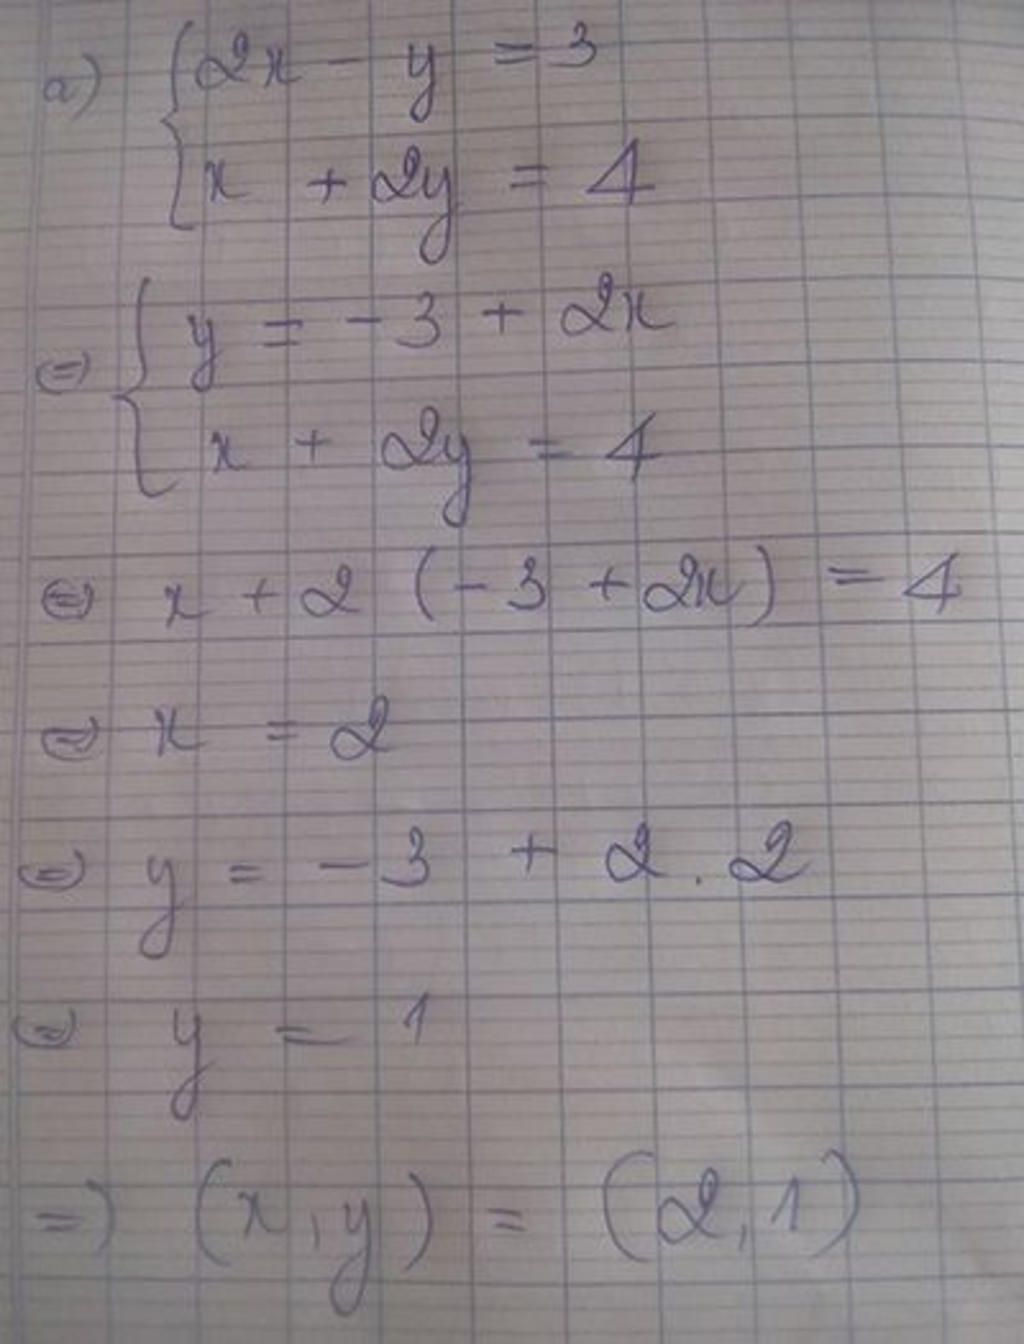 a) { 2x - y = 3
x + 2y = 4
⇔ { y = -3 + 2x
x + 2y = 4
⇔ x + 2 (-3 + 2x) = 4
⇔ x = 2
⇔ y = -3 + 2 . 2
⇔ y = 1
=) (x, y) = (2, 1)